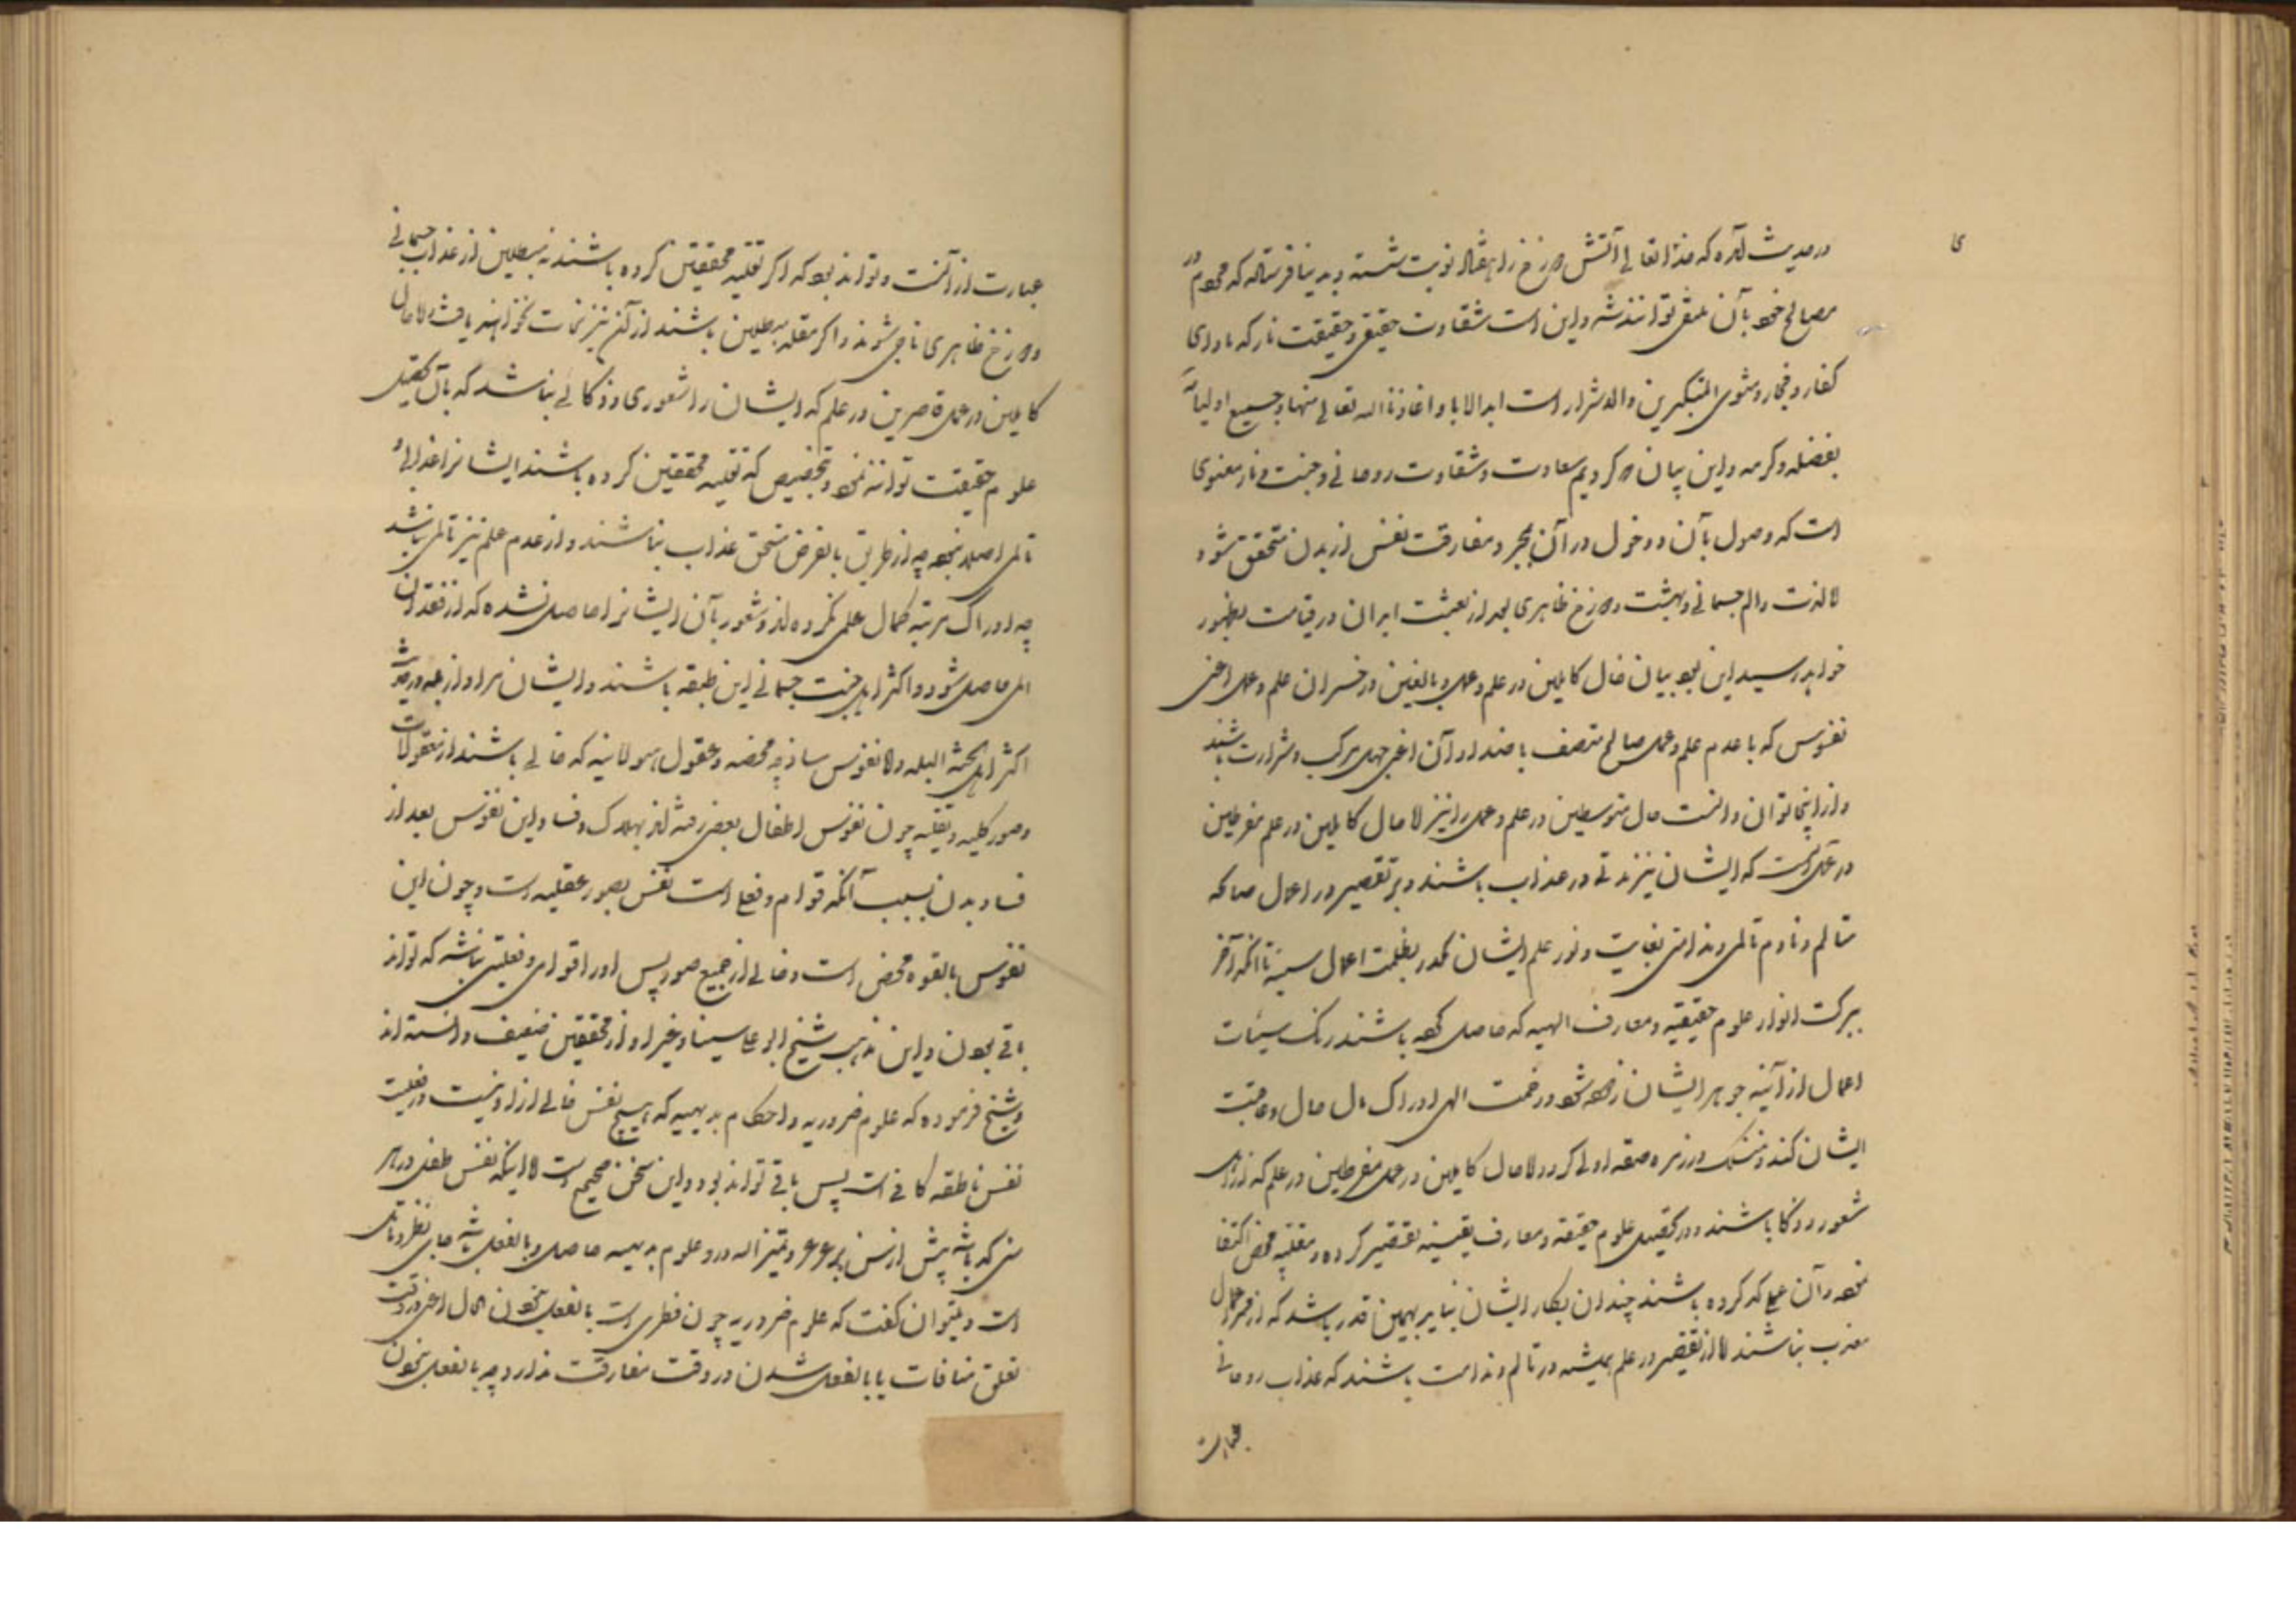 در حدیث آمده که خدا تعالی آتش دوزخ را هفتاد نوبت شسته و بدنیا فرستاده که مردم در
مصالح خود بآن منتفع توانند شد و این است شقاوت حقیقی و حقیقت نار که ماوای
کفار و فجار و مثوی المتکبرین و الاشرار است ابد الاباد اعاذنا الله تعالی منها و جمیع اولیائه
بفضله و کرمه و این بیان که کردیم سعادت و شقاوت روحانی و جنت و نار معنوی
است که وصول بآن و دخول در آن بمجرد مفارقت نفس از بدن متحقق شود
اما لذت و الم جسمانی و بهشت و دوزخ ظاهری بعد از بعثت ابدان در قیامت بظهور
خواهد رسید این بود بیان حال کاملین در علم و عمل و بالغین در خسران علم و عمل اعنی
نفوس که با عدم علم و عمل صالح متصف باضداد آن اعنی جهل مرکب و شرارت باشند
و از اینجا توان دانست حال متوسطین در علم و عمل را نیز اما حال کاملین در علم مفرطین
در عمل آنست که ایشان نیز مدتی در عذاب باشند و بر تقصیر در اعمال صالحه
متالم و نادم تالمی و ندامتی بغایت و نور علم ایشان مکدر بظلمت اعمال سیئه تا آنکه آخر
ببرکت انوار علوم حقیقیه و معارف الهیه که حاصل کرده باشند زنگ سیئات
اعمال از آینه جوهر ایشان زدوده شود و رحمت الهی ادراک مال حال و عاقبت
ایشان کند و منسلک در زمره طبقه اولی گردد اما حال کاملین در عمل مفرطین در علم که از اهل
شعور و ذکا باشند و در تحصیل علوم حقیقه و معارف یقینیه تقصیر کرده و بتقلید محض اکتفا
نموده آن عملی که کرده باشند چندان بکار ایشان نیاید همین قدر باشد که از ممر اعمال
معذب نباشند اما از تقصیر در علم همیشه در تالم و ندامت باشند که عذاب روحانی
عبارت
عبارت از آنست و تواند بود که اگر تقلید محققین کرده باشند نه مبطلین از عذاب جسمانی
و دوزخ ظاهری ناجی شوند و اگر مقلد مبطلین باشند از آن نیز نجات نخواهند یافت و اما حال
کاملین در عمل قاصرین در علم که ایشان را شعوری و ذکائی نباشد که بآن تحصیل
علوم حقیقت توانند نمود و بتخصیص که تقلید محققین کرده باشند ایشانرا عذاب و
تالمی اصلا نبود چه از طریق بالعرض مستحق عذاب نباشند و از عدم علم نیز تالمی نباشد
چه ادراک مرتبه کمال علمی نکرده اند و شعور بآن ایشانرا حاصل نشده که از فقدان
المی حاصل شود و اکثر اهل جنت جسمانی این طبقه باشند و ایشان مراد از بله در حدیث
اکثر اهل الجنة البله و اما نفوس ساذجه محضه و عقول هیولانیه که خالی باشند از معقولات
و صور کلیه و تقلید چون نفوس اطفال بعضی رفته اند بهلاک و فساد این نفوس بعد از
فساد بدن بسبب آنکه قوام و فعلیت نفس بصور عقلیه است و چون این
نفوس بالقوه محض است و خالی از جمیع صور پس او را قوامی و فعلیتی نباشد که تواند
باقی بودن و این مذهب شیخ ابو علی سینا و غیر او از محققین ضعیف دانسته اند
و شیخ فرموده که علوم ضروریه و احکام بدیهیه که هیچ نفس خالی از آن نیست در فعلیت
نفس ناطقه کافی است پس باقی تواند بود و این سخن صحیح است اما اینکه نفس طفل در هر
سنی که باشد پیش از سن و تمیز اله در و علوم بدیهیه حاصل و بالفعل باشد جای نظر و تامل
است و میتوان گفت که علوم ضروریه چون فطری است بالفعل نبودن الحال اعنی در وقت
تعلق منافات با بالفعل شدن در وقت مفارقت ندارد چه بالفعل نبودن